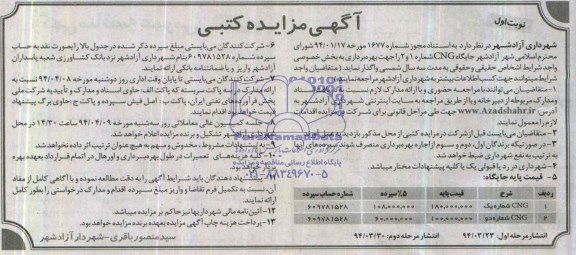 نوبت اول
آگهی مزایده کتبی
شهرداری آزادشهر در نظر دارد به استناد مجوز شماره ۱۶۷۷ مورخ ۹۴/۰۱/۱۷ شورای
محترم اسلامی شهر آزادشهر جایگاه CNG شماره ۱ و ۲ را جهت بهره‌برداری به بخش خصوصی
واجد شرایط اشخاص حقیقی و حقوقی به مدت سه سال شمسی واگذار نماید. (متقاضیان واجد
شرایط میتوانند جهت کسب اطلاعات بیشتر به شهرداری آزادشهر مراجعه نمایند)
۱- متقاضیان می‌توانند با مراجعه حضوری و با ارائه مدارک لازم نسبت به
ومدارک مربوطه از دبیرخانه و یا از طریق مراجعه به سایت اینترنتی شهرداری آزادشهر به
آدرس: www.Azadshahr.ir جهت طی مراحل قانونی برای شرکت در مزایده اقدامات
لازم را معمول نمایند.
۲- متقاضیان می‌بایست قبل از شرکت در مزایده کتبی از محل مذکور بازدید به
۳- در صورتیکه برندگان اول، دوم و سوم از اجاره بهره برداری منصرف شوند سپرده‌های آنها
به ترتیب به نفع شهرداری ضبط خواهد شد.
۴- شهرداری در رد یا قبول یک یا کلیه پیشنهادات مختار میباشد.
۵- قیمت پایه جایگاه:
۶- شرکت کنندگان می‌بایستی مبلغ سپرده ذکر شده در جدول بالا را بصورت نقد به حساب
سپرده شماره ۶۰۹۷۸۱۵۲۸ بنام شهرداری آزادشهر نزد بانک کشاورزی شعبه پاسداران
آزادشهر واریز و یا ضمانتنامه بانکی ارائه نمایند.
۷- شرکت کنندگان می‌بایستی تا پایان وقت اداری روز دوشنبه مورخه ۹۴/۰۴/۰۸ نسبت به
ارائه مدارک در سه پاکت سربسته که پاکت الف: حاوی اسناد و مدارک و تأییدیه شرکت ملی
پخش فرآورده‌های نفتی ایران، پاکت ب: اصل فیش سپرده و پاکت ج: حاوی برگ پیشنهاد
قیمت خواهد بود اقدام نمایند.
۸- جلسه کمیسیون عالی معاملاتی روز سه‌شنبه مورخه ۹۴/۰۴/۰۹ ساعت ۱۴/۳۰ در محل
تشکیل و برنده مزایده اعلام خواهد شد.
۹- به پیشنهادات مشروط، مخدوش و مبهم به هیچ عنوان ترتیب اثر داده نخواهد شد.
۱۰- کلیه هزینه‌های تعمیرات در طول بهره‌برداری و اورهال در اتمام قرارداد بعهده بهره
یاد باید شرایط آگهی را به دقت مطالعه نموده و با آگاهی کامل از مفاد
آن، نسبت به تکمیل فرم تقاضا و واریز مبلغ سپرده اقدام و مدارک درخواستی را بطور کامل
ارائه نمایند.
۱۲- آئین‌نامه مالی شهرداریها نیز حاکم بر مزایده میباشد.
۱۳- پرداخت هزینه چاپ آگهی مزایده بعهده برنده مزایده خواهد بود.
ردیف شرح قیمت پایه ۵٪ سپرده شماره حساب سپرده
۱ CNG شماره یک ۱۸۰,۰۰۰,۰۰۰ ۱۰۸,۰۰۰,۰۰۰ ۶۰۹۷۸۱۵۲۸
۲ CNG شماره دو ۱۰۰,۰۰۰,۰۰۰ ۶۰,۰۰۰,۰۰۰ ۶۰۹۷۸۱۵۲۸
انتشار مرحله اول: ۹۴/۰۳/۲۳ انتشار مرحله دوم: ۹۴/۰۳/۳۰
سید منصور باقری - شهردار آزادشهر
پایگاه اطلاع رسانی مناقصه و مزایده
۰۲۱-۸۸۳۴۹۶۷۰-۵